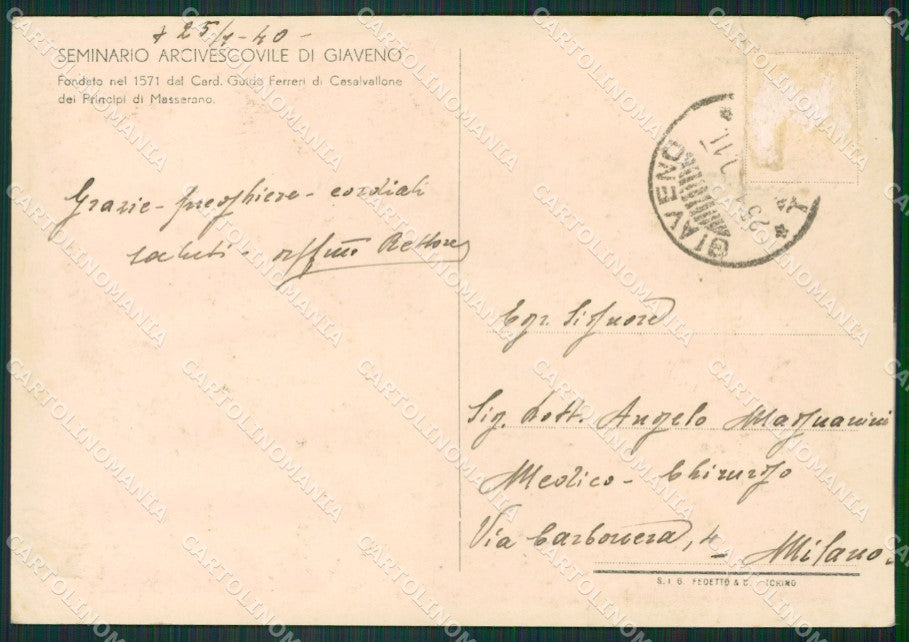 + 25/1-40-
SEMINARIO ARCIVESCOVILE DI GIAVENO
Fondato nel 1571 dal Card. Guido Ferreri di Casalvallone
dei Principi di Masserano.
Grazie - preghiere - cordiali
saluti - aff.mo Rettore
GIAVENO
Egr. Signore
Sig. Dott. Angelo Magnanini
Medico - Chirurgo
Via Carbonera, 4 - Milano.
S. I. G. FEDETTO & C. - TORINO
CARTOLINOMANIA